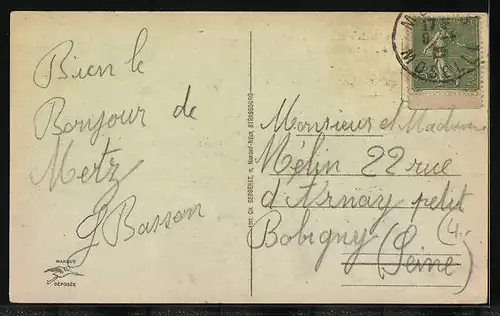 Bien le
Bonjour de
Metz
G Basson
MARQUE
DÉPOSÉE
EDIT. CH. BERGERET, STRASBOURG
Monsieur et Madame
Mélin 22 rue
d'Arnay petit
Bobigny
(Seine)
(4.-
MOSELLE